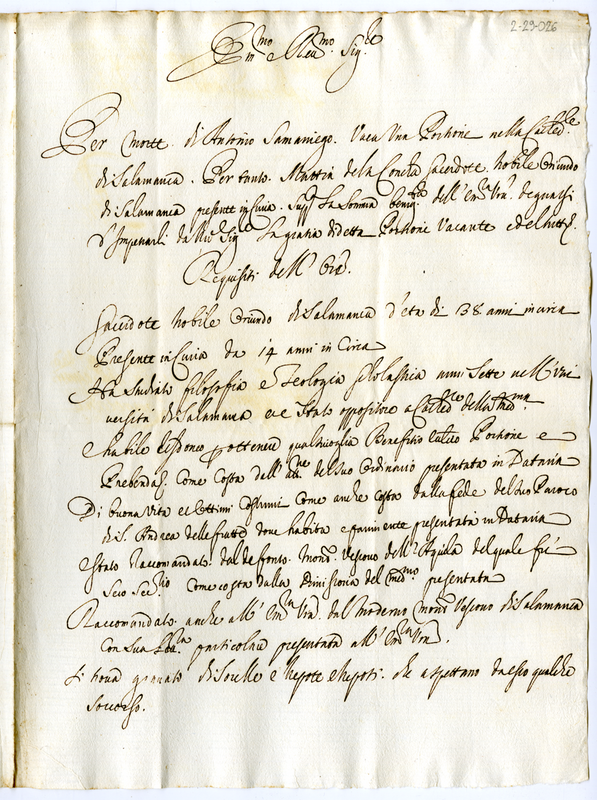 2-29-026
Em.mo e Reu.mo Sig.re
Per morte di Antonio Samaniego. Vaca Una Portione nella Cated.le
di Salamanca. Per tanto. Mattia de la Concha Sacerdote Nobile Oriundo
di Salamanca presente in Curia. Supp.ca la somma benig.tà dell' Em.za Vra. degnarsi
d'Impetrarli da Nro Sig.re La gratia di detta Portione Vacante
Requisiti dell' Ore.
Sacerdote Nobile Oriundo di Salamanca d'età di 38 anni in circa
Presente in Curia da 14 anni in Circa
Ha studiato filosofia e Teologia scolastica anni Sette nell' Uni
uersità di Salamanca et è stato oppositore a Cated.re della
e habile et Idoneo p ottenere qualsiuoglia Benefitio Portione e
Prebenda. Come Costa dell' att.ne del suo Ordinario presentata in Dataria
Di buona Vita et ottimi Costumi Come anche costa dalla fede del suo Paroco
di S. Andrea delle fratte doue habita e parimente presentata in Dataria
e stato Raccomandato dal defonto Mons. Vescouo dell' Aquila del quale fù
Sec.rio Come costa dalla del med.mo presentata
Raccomandato anche all' Em.za Vra dal moderno Mons Vescouo di Salamanca
Con sua particolare presentata all' Em.za Vra.
Si troua grauato di Sorelle e Nepote e Nepoti. che aspettano da esso qualche
Soccorso.